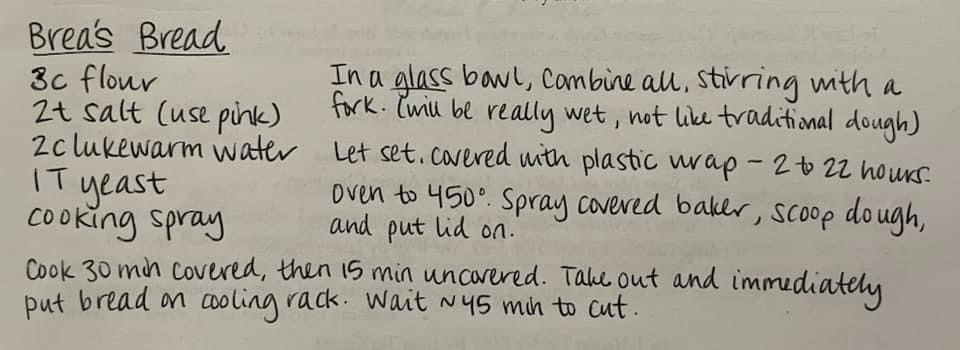 Brea's Bread
3c flour
2t salt (use pink)
2c lukewarm water
1T yeast
cooking spray
In a glass bowl, combine all, stirring with a
fork. (will be really wet, not like traditional dough)
Let set, covered with plastic wrap - 2 to 22 hours.
Oven to 450°. Spray covered baker, scoop dough,
and put lid on.
Cook 30 min covered, then 15 min uncovered. Take out and immediately
put bread on cooling rack. Wait ~45 min to cut.